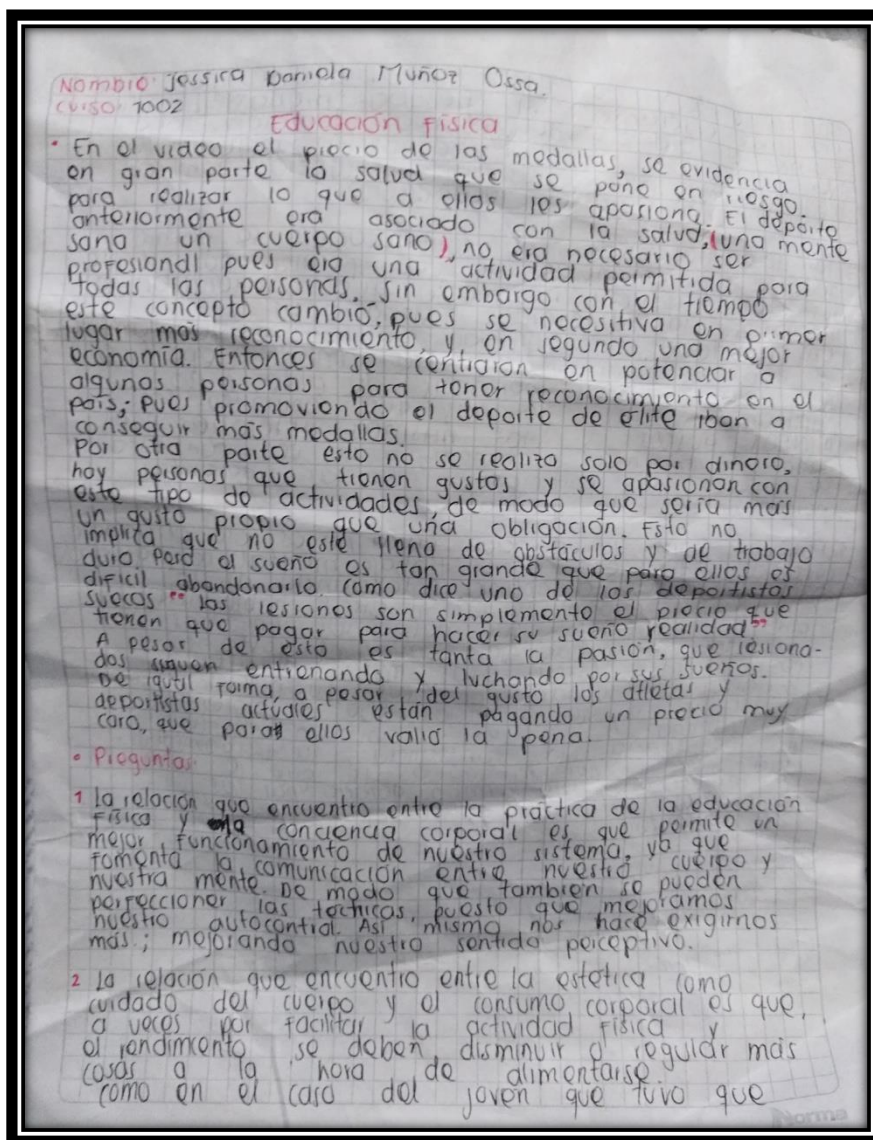 Nombre: Jessica Daniela Muñoz Ossa.
Curso: 1002
Educación Física
• En el video el precio de las medallas, se evidencia
en gran parte la salud que se pone en riesgo.
para realizar lo que a ellos les apasiona. El deporte
anteriormente era asociado con la salud, (una mente
sana un cuerpo sano), no era necesario ser
profesional pues era una actividad permitida para
todas las personas. Sin embargo con el tiempo
este concepto cambió, pues se necesitiva en primer
lugar más reconocimiento, y en segundo una mejor
economía. Entonces se centraron en potenciar a
algunas personas para tener reconocimiento en el
país; pues promoviendo el deporte de élite iban a
conseguir más medallas.
Por otra parte esto no se realiza solo por dinero,
hay personas que tienen gustos y se apasionan con
este tipo de actividades, de modo que sería más
un gusto propio que una obligación. Esto no
implica que no esté lleno de obstáculos y de trabajo
duro. Pero el sueño es tan grande que para ellos es
difícil abandonarlo. Como dice uno de los deportistas
suecos "las lesiones son simplemente el precio que
tienen que pagar para hacer su sueño realidad"
A pesar de esto es tanta la pasión, que lesiona-
dos siguen entrenando y luchando por sus sueños.
De igual forma, a pesar del gusto los atletas y
deportistas actuales están pagando un precio muy
caro, que para ellos valió la pena.
• Preguntas
1 la relación que encuentro entre la práctica de la educación
física y la conciencia corporal es que permite un
mejor funcionamiento de nuestro sistema, ya que
fomenta la comunicación entre nuestro cuerpo y
nuestra mente. De modo que también se pueden
perfeccionar las técnicas, puesto que mejoramos
nuestro autocontrol. Así mismo nos hace exigirnos
más; mejorando nuestro sentido perceptivo.
2 la relación que encuentro entre la estética como
cuidado del cuerpo y el consumo corporal es que,
a veces por facilitar la actividad física y
el rendimiento se deben disminuir o regular más
cosas a la hora de alimentarse.
como en el caso del joven que tuvo que
Norma